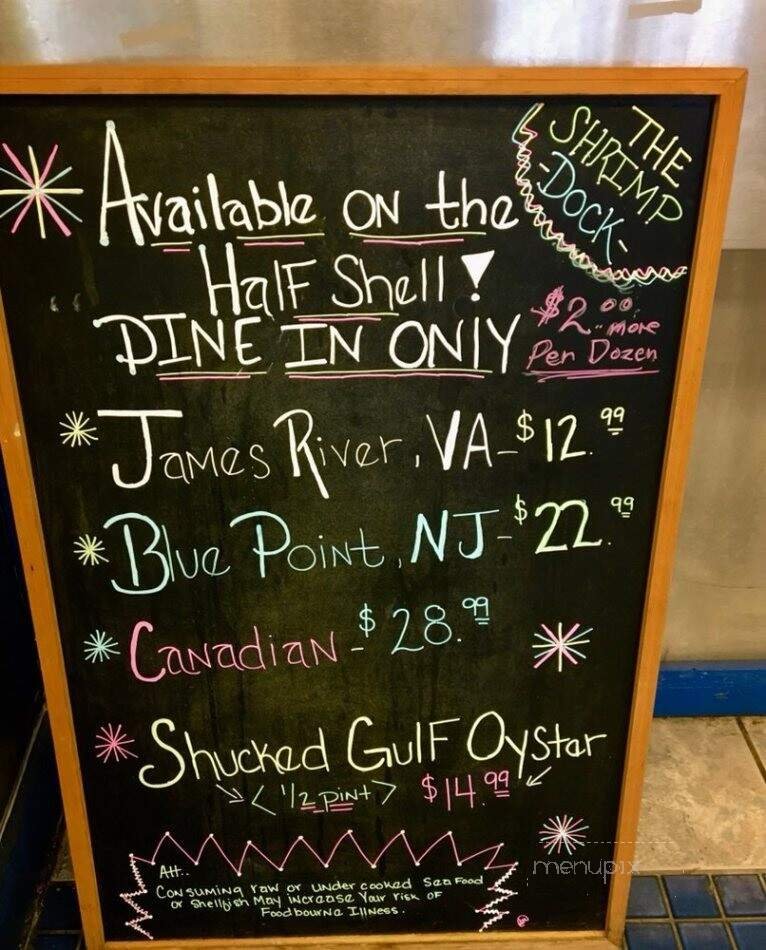 THE
SHRIMP
-DOCK-
Available ON the
Half Shell!
DINE IN ONLY
$2.00 more
Per Dozen
James River, VA-$12.99
Blue Point, NJ-$22.99
Canadian-$28.99
Shucked Gulf Oyster
<1/2 pint> $14.99
Att..
Consuming raw or under cooked Sea Food
or Shellfish May increase Your risk of
Foodbourne Illness.
menupix